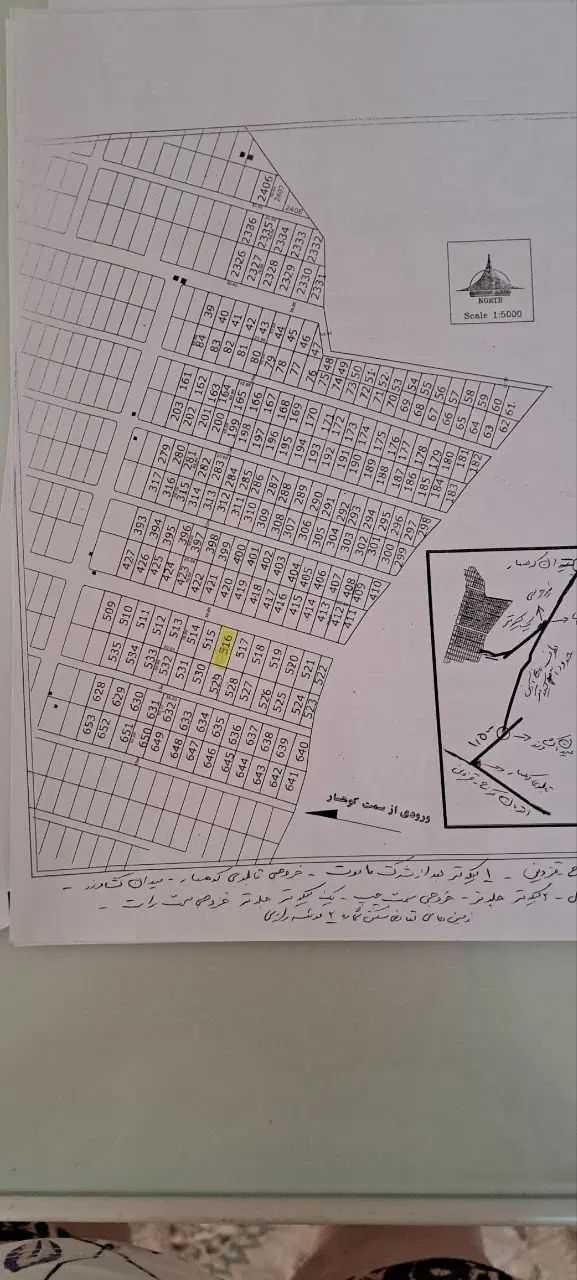 2406
2407
2408
2336 2335 2334 2333 2332
2326 2327 2328 2329 2330 2331
NORTH
Scale 1:5000
39 40 41 42 43 44 45 46 47
84 83 82 81 80 79 78 77 76
48 49 50 51 52 53 54 55 56 57 58 59 60 61
75 74 73 72 71 70 69 68 67 66 65 64 63 62
161 162 163 164 165 166 167 168 169 170 171 172 173 174 175 176 177 178 179 180 181 182
203 202 201 200 199 198 197 196 195 194 193 192 191 190 189 188 187 186 185 184 183
279 280 281 282 283 284 285 286 287 288 289 290 291 292 293 294 295 296 297 298
317 316 315 314 313 312 311 310 309 308 307 306 305 304 303 302 301 300 299
393 394 395 396 397 398 399 400 401 402 403 404 405 406 407 408 409 410
427 426 425 424 423 422 421 420 419 418 417 416 415 414 413 412 411
509 510 511 512 513 514 515 516 517 518 519 520 521 522
535 534 533 532 531 530 529 528 527 526 525 524 523
628 629 630 631 632 633 634 635 636 637 638 639 640
653 652 651 650 649 648 647 646 645 644 643 642 641
ورودی از سمت کوهسار
میدان کوهسار
اتوبان کرج - قزوین
قزوین - ۱ کیلومتر بعد از شرکت ماموت - خروجی تابلوی کوهسار - میدان کشاورز -
۲ کیلومتر جلوتر - خروجی سمت چپ - یک کیلومتر جلوتر خروجی سمت راست -
زمین های تعاونی مسکن شماره ۲